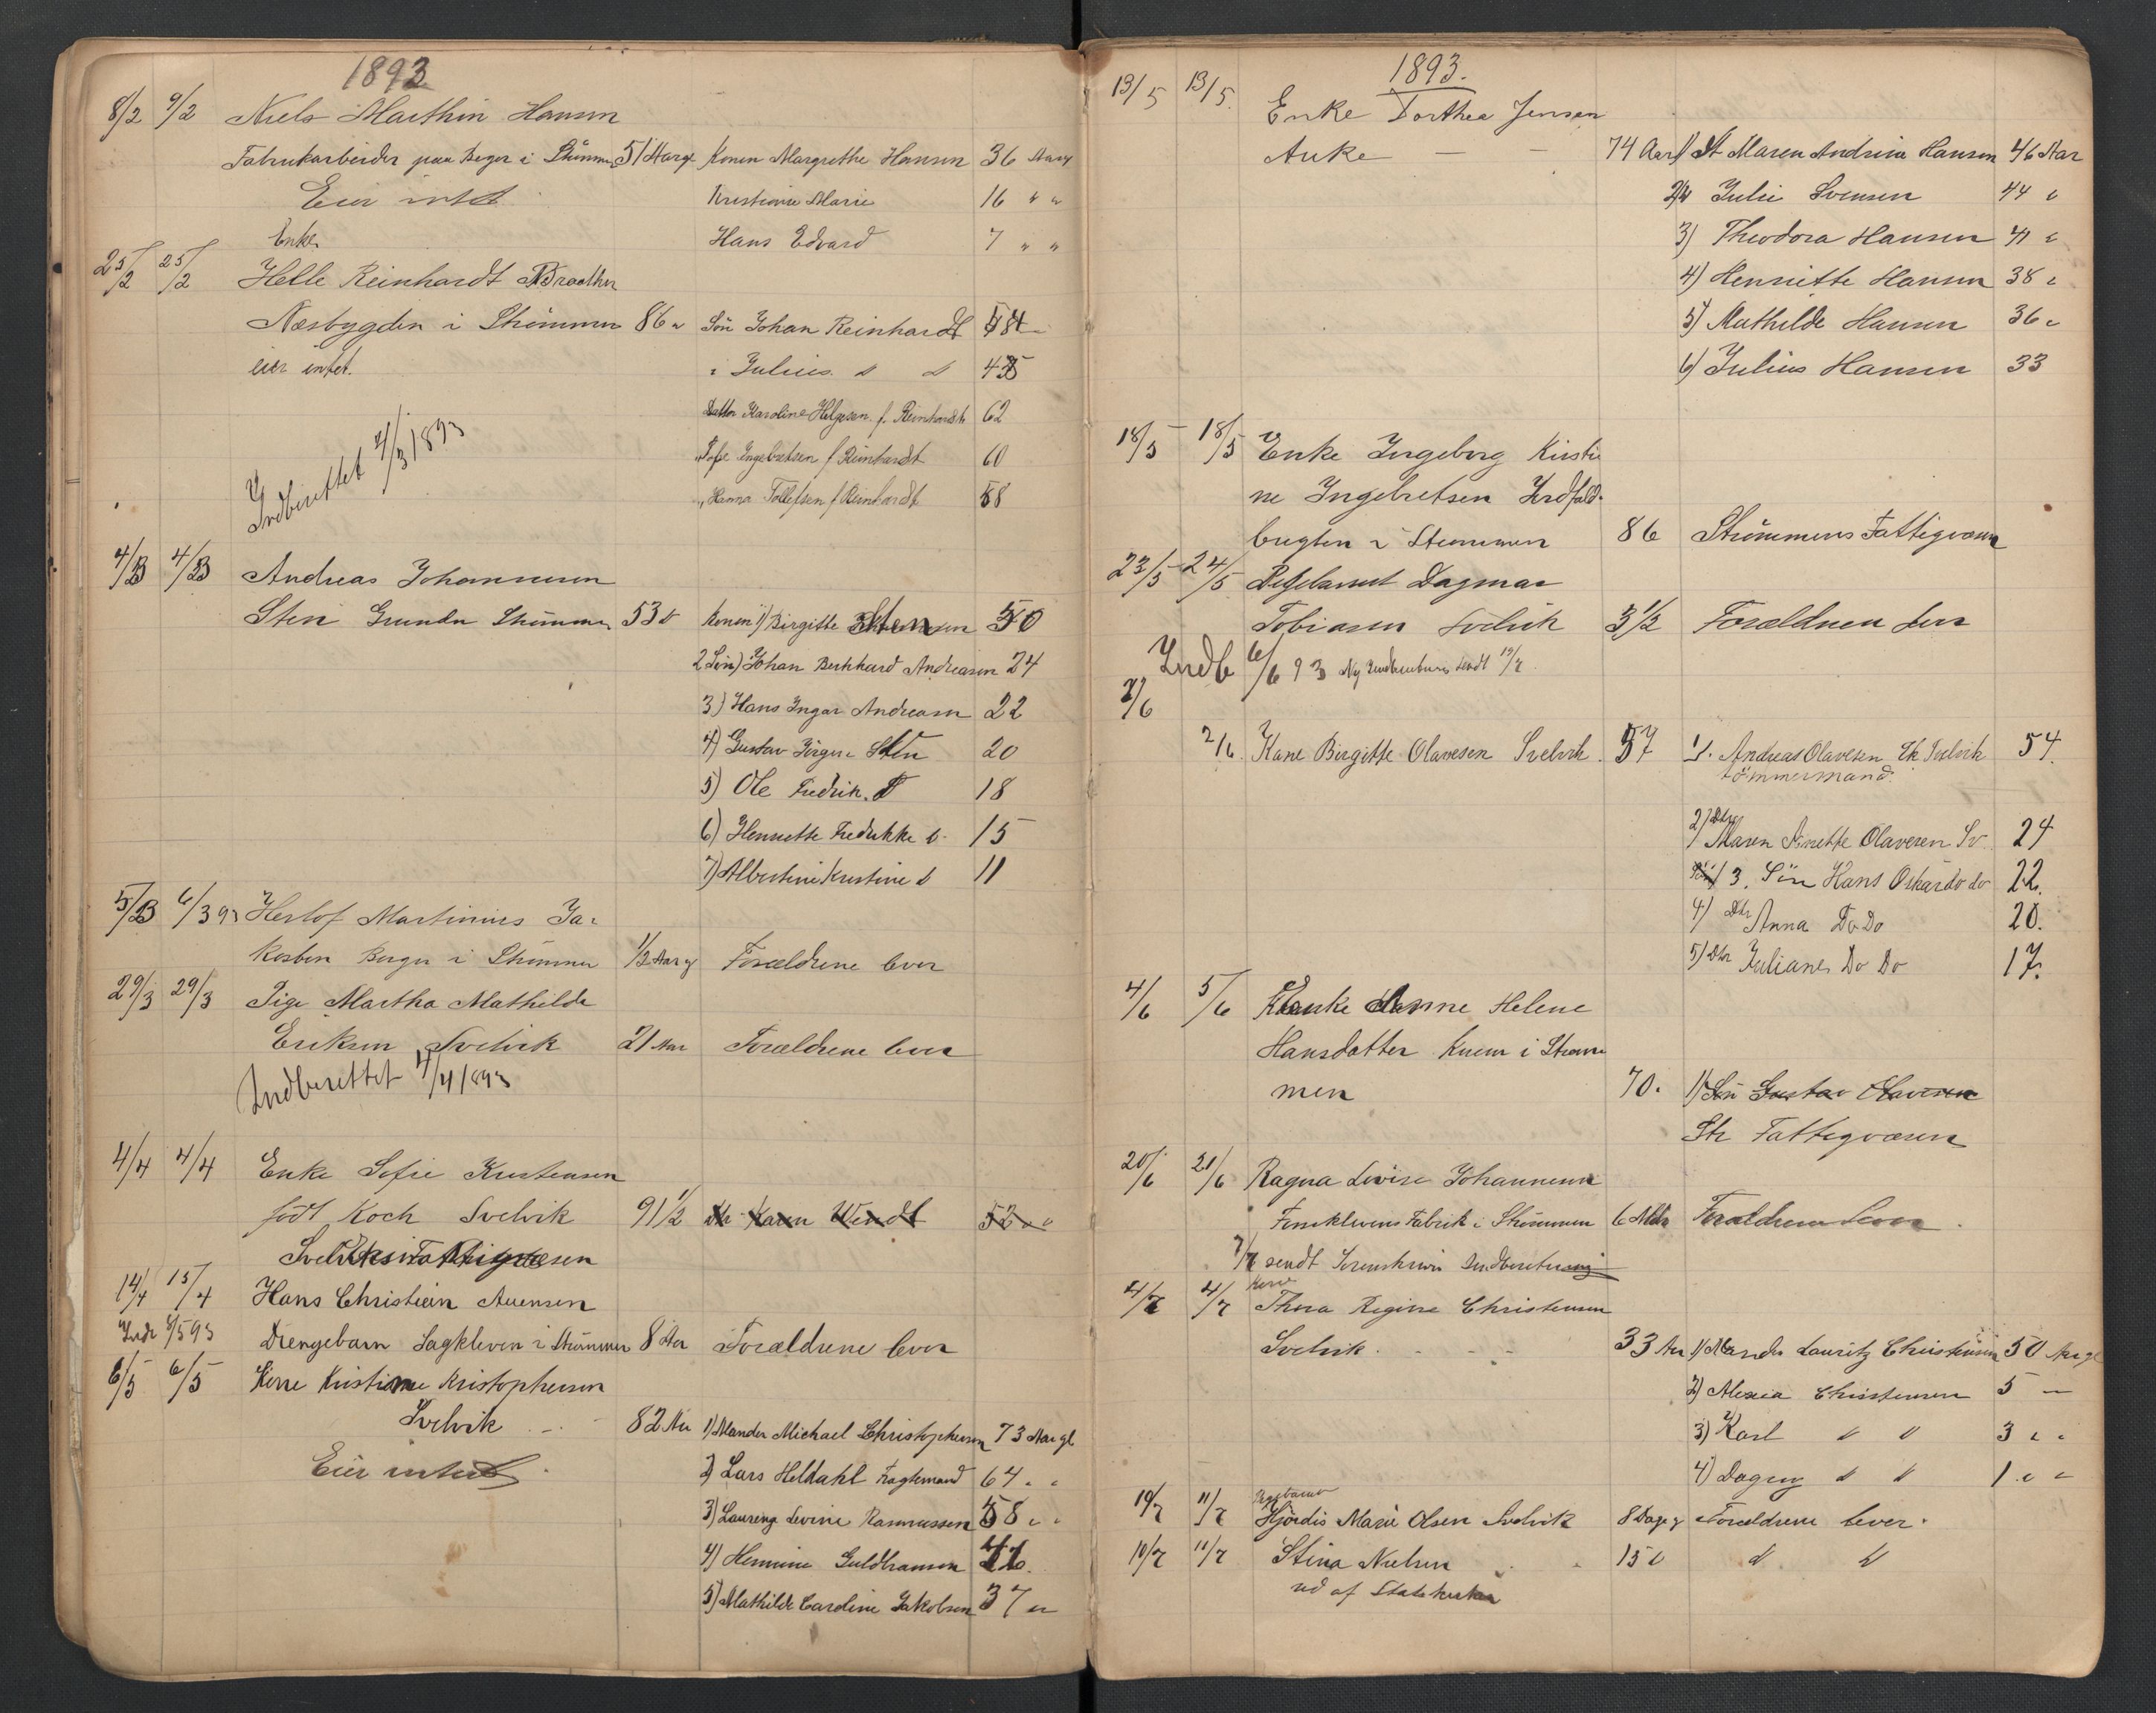 1893
8/2 9/2 Niels Marthin Hansen
Fabrikarbeider paa Berger i Strömmen 51 Aar gl Konen Margrethe Hansen 36 Aar gl
Eier intet Kristiane Marie 16 " "
Enke Hans Edvard 7 " "
25/2 25/2 Helle Reinhardt
Nesbygden i Strömmen 86 " Sön Johan Reinhardt
eier intet. " Julius d d
Datter Karoline Helgesen f. Reinhardt 62
" Ingebretsen f Reinhardt 60
Indberettet 4/3 1893 " Hanna Tollefsen f Reinhardt 58
4/3 4/3 Andreas Johannesen
Sten Strömmen 53 d Konen 1) Birgitte Sten 50
2 Sön) Johan Andreasen 24
3) Hans Ingar Andreasen 22
4) Gustav Jörgen Sten 20
5) Ole Fredrik. d 18
6) Henriette Fredrikke d. 15
7) Albertine Kristine d 11
5/3 6/3 93 Herlof Martinius Ja-
kobsen Berger i Strömmen 1/2 Aar g Forældrene lever
29/3 29/3 Pige Martha Mathilde
Eriksen Svelvik 21 Aar Forældrene lever
Indberettet 4/4 1893
4/4 4/4 Enke Sofie Kristensen
født Koch Svelvik 91 1/2 Dtr Karen Wendt 52 " "
Svelviks Fattigvæsen
14/4 15/4 Hans Christian Auensen
Indb 3/5 93 Drengebarn Sagkleven i Strömmen 8 Aar Forældrene lever
6/5 6/5 Kone Kristiane Kristophersen
Svelvik 82 Aar 1) Manden Michael Christophersen 73 Aar gl
Eier intet 2) Lars Heldahl Fragtemand 64 " "
3) Laurenze Levine Rasmussen 58 " "
4) Hermine Guldbransen
5) Mathilde Caroline Jakobsen 37 "
1893.
13/5 13/5. Enke Dorthea Jensen
Auke — — 74 Aar 1) Maren Andrine Hansen 46 Aar
2) Julie Svensen 44 "
3) Theodora Hansen 41 "
4) Henriette Hansen 38 "
5) Mathilde Hansen 36 "
6) Julius Hansen 33
18/5 18/5 Enke Ingeborg Kirsti
ne Ingebretsen Jordfald-
bugten i Strømmen 86 Strömmens Fattigvæsen
23/5 24/5 Pigebarnet Dagmar
Tobiasen Svelvik 3 1/2 Forældrene lever
Indb 6/6 93 Ny Indberetning sendt 19/7.
2/6
2/6. Kone Birgitte Olavesen Svelvik. 57 1/. Andreas Olavesen Svelvik 54.
tömmermand.
2/ Dtr
Maren Olavesen Sv 24
3. Sön Hans Oskar do do 22.
4/ Dtr Anna Do Do 20.
5/ Dtr Juliane Do Do 17.
4/6 5/6 Hanne Helene
Hansdatter Knem i Strøm
men 70. 1) Sön Gustav Olavesen
Str Fattigvæsen
20/6 21/6 Ragna Lovise Johannesen
Fossklevens Fabrik i Strömmen 6 Mdr Forældrene lever.
7/7 sendt Sorenskriver Indberetning
Kone
4/7 4/7 Thora Regine Christensen
Svelvik. - - - 33 Aar 1) Manden Lauritz Christensen 30 Aar gl
2) Alexia Christensen 5 —
3) Karl d d 3 " "
4) Dagny d d 1 " "
Pigebarnet
10/7 11/7 Hjördis Marie Olsen Svelvik 8 Dage g Forældrene lever.
10/7 11/7 Stina Nielsen 15 d d d
ud af Statskirken